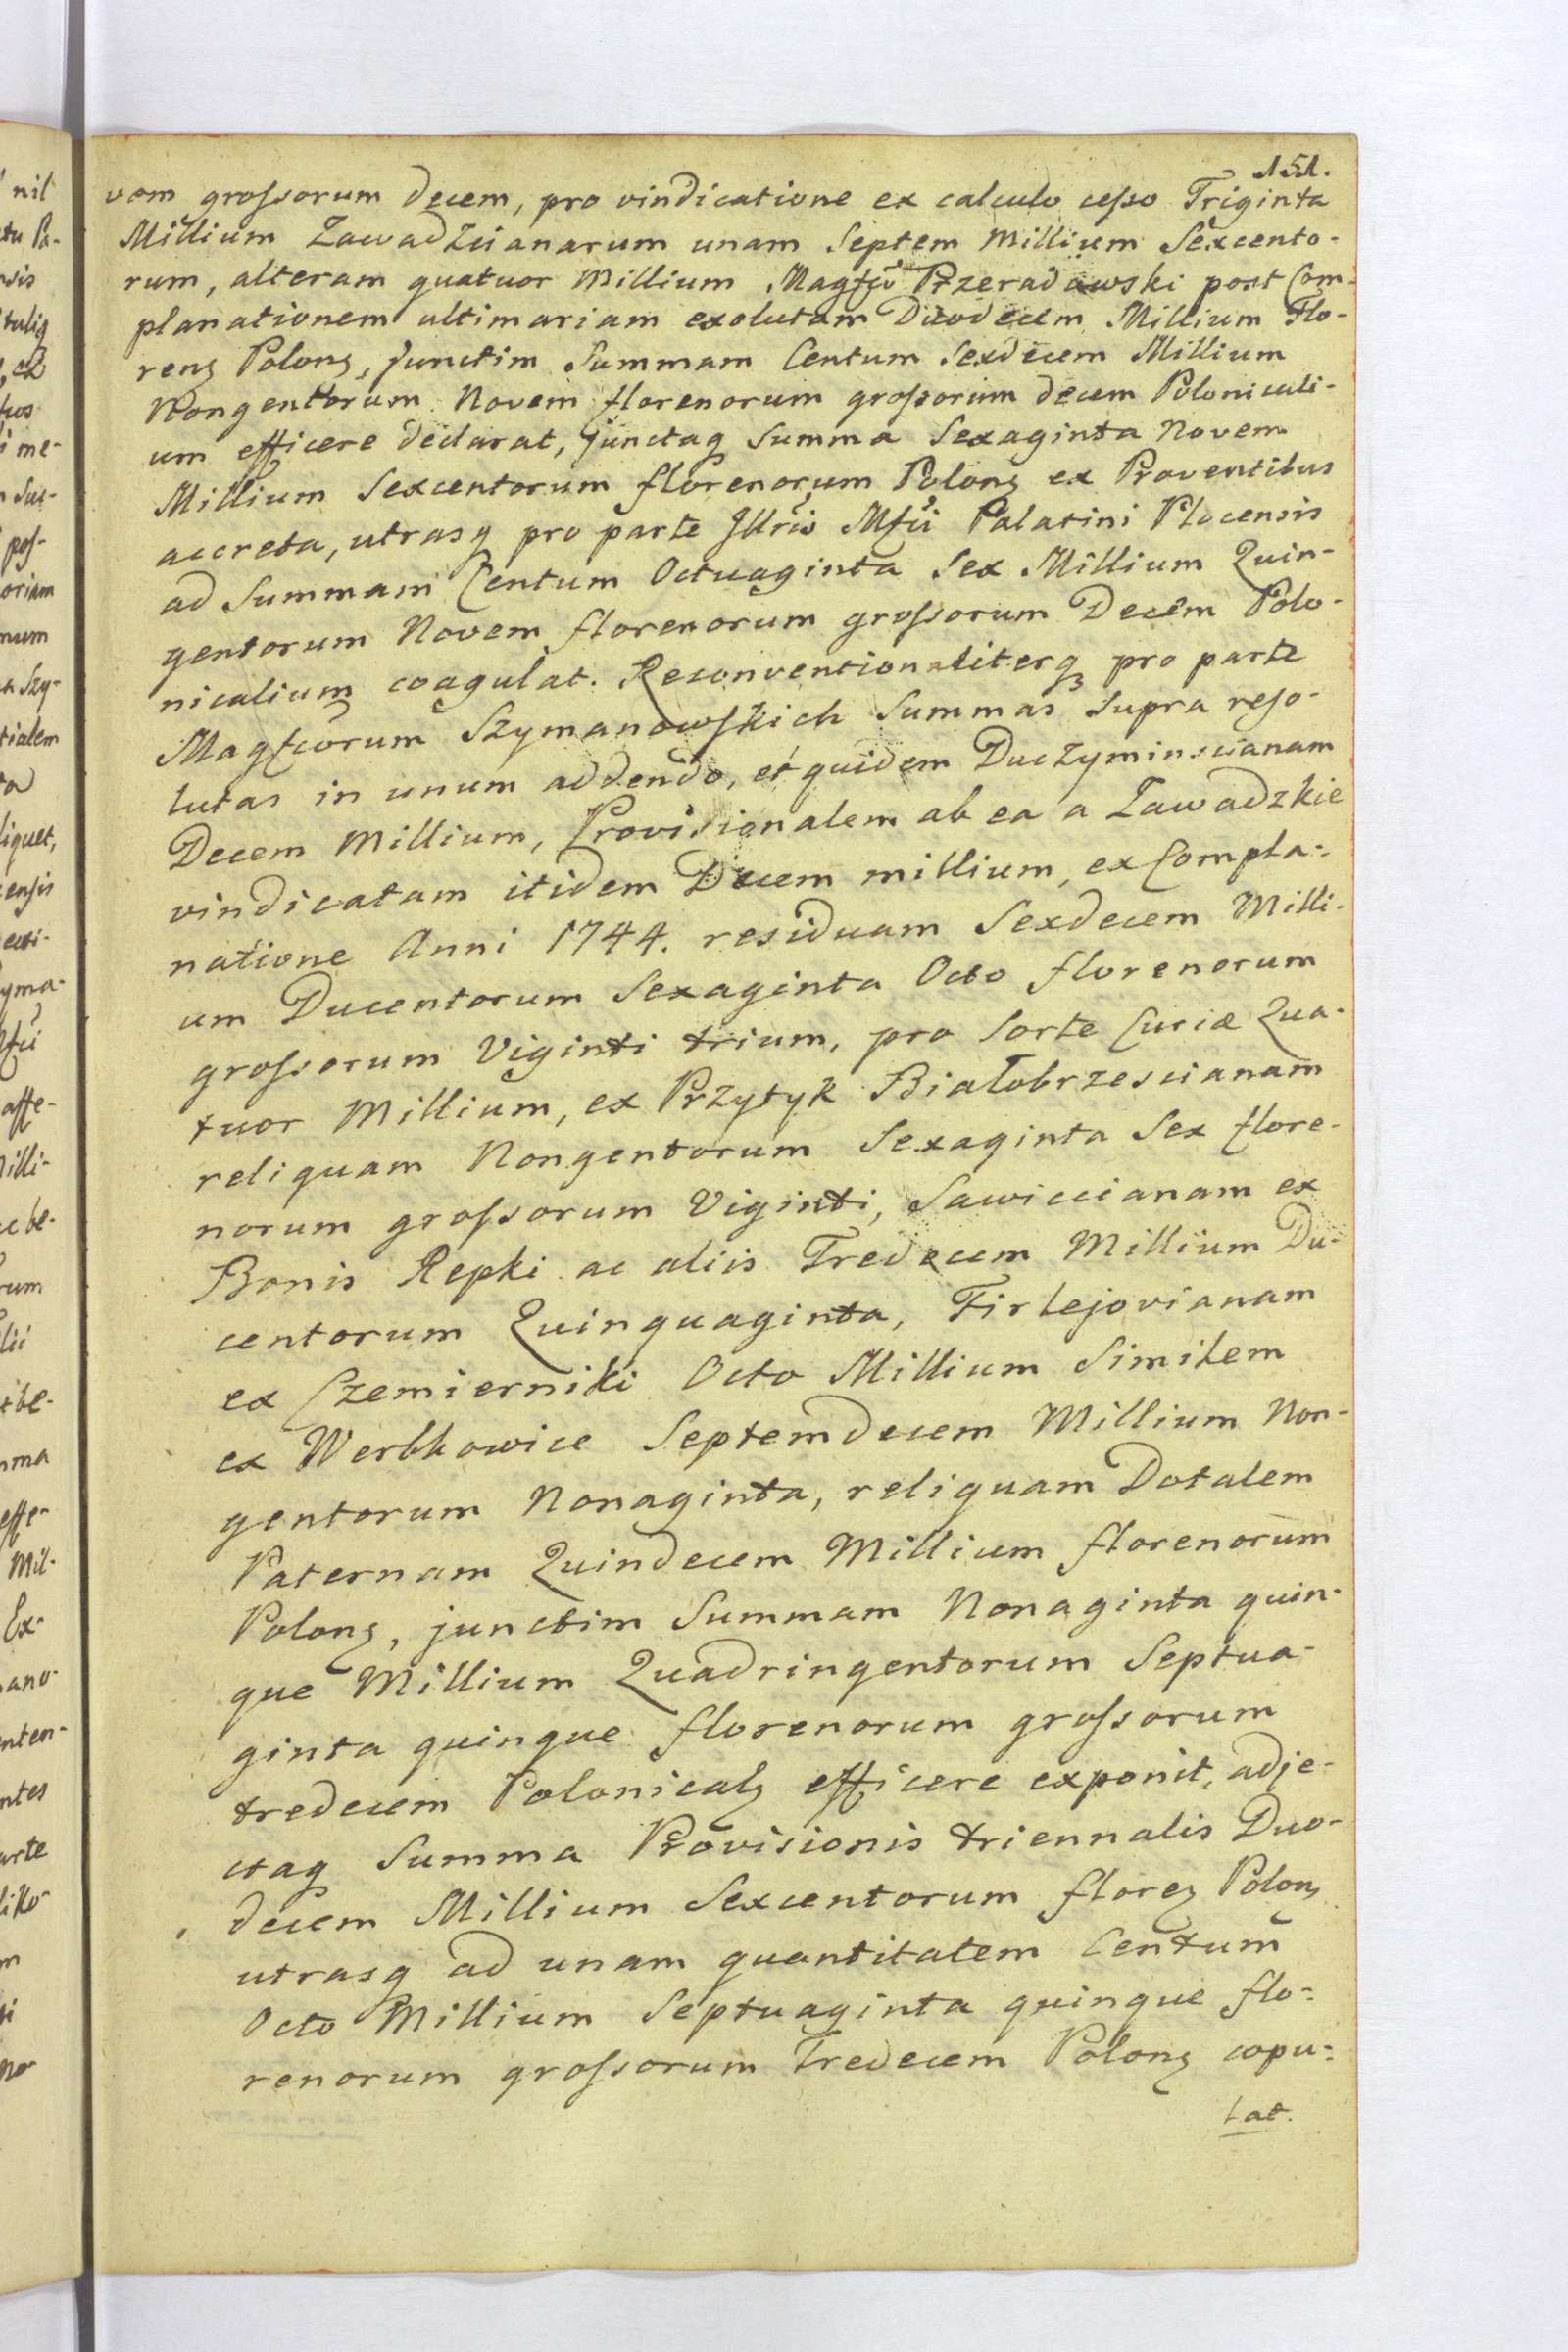 151.
vem grossorum decem, pro vindicatione ex calculo cesso Triginta
Millium Zawadzcianarum unam Septem Millium Sexcento-
rum, alteram quatuor Millium, Magfci Przeradowski post Com-
planationem ultimariam exolutam Duodecem Millium Flo-
renꝫ Polonꝫ, junctim Summam Centum Sexdecem Millium
Nongentorum Novem florenorum grossorum decem Polonicali-
um efficere declarat, junctaqꝫ Summa Sexaginta Novem
Millium Sexcentorum florenorum Polonꝫ ex Proventibus
accreta, utrasqꝫ pro parte Jllris Mfci Palatini Plocensis
ad Summam Centum Octuaginta Sex Millium Quin-
gentorum Novem florenorum grossorum Decem Polo-
nicalium coagulat. Reconventionaliterqꝫ pro parte
Magfcorum Szymanowskich Summas supra reso-
lutas in unum addendo, et quidem Duczyminscianam
Decem Millium, Provisionalem ab ea a Zawadzkie
vindicatam itidem Decem millium, ex Compla-
natione Anni 1744. residuam Sexdecem Milli-
um Ducentorum Sexaginta Octo florenorum
grossorum Viginti trium, pro Sorte Curiæ Qua-
tuor Millium, ex Przytyk Białobrzescianam
reliquam Nongentorum Sexaginta Sex flore-
norum grossorum Viginti, Sawiccianam ex
Bonis Repki ac aliis Tredecem Millium Du-
centorum Quinquaginta, Firlejovianam
ex Czemierniki Octo Millium Similem
ex Werbkowice Septemdecem Millium Non-
gentorum Nonaginta, reliquam Dotalem
Paternam Quindecem Millium florenorum
Polonꝫ, junctim Summam Nonaginta quin-
que Millium Quadringentorum Septua-
ginta quinque florenorum grossorum
tredecem Polonicalꝫ efficere exponit, adje-
ctaqꝫ Summa Provisionis triennalis Duo-
decem Millium Sexcentorum florenꝫ Polonꝫ
utrasqꝫ ad unam quantitatem Centum
Octo Millium Septuaginta quinque flo-
renorum grossorum Tredecem Polonꝫ copu-
lat.